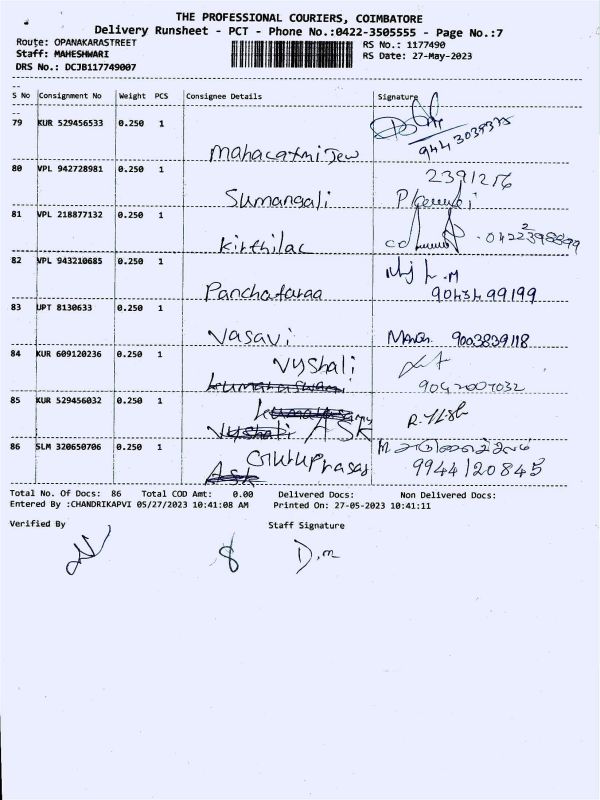 THE PROFESSIONAL COURIERS, COIMBATORE
Delivery Runsheet - PCT - Phone No.:0422-3505555 - Page No.:7
Route: OPANAKARASTREET RS No.: 1177490
Staff: MAHESHWARI RS Date: 27-May-2023
DRS No.: DCJB117749007
S No Consignment No Weight PCS Consignee Details Signature
79 KUR 529456533 0.250 1
9443039375
80 VPL 942728981 0.250 1 2391216
Sumangali
81 VPL 218877132 0.250 1
Kirthilal
82 VPL 943210685 0.250 1
9043499199
83 UPT 8130633 0.250 1
Vasavi 9003839118
84 KUR 609120236 0.250 1 Vyshali
9042007032
85 KUR 529456032 0.250 1
ASK
86 SLM 320650706 0.250 1
Guruprasad 9944120845
Total No. Of Docs: 86 Total COD Amt: 0.00 Delivered Docs: Non Delivered Docs:
Entered By :CHANDRIKAPVI 05/27/2023 10:41:08 AM Printed On: 27-05-2023 10:41:11
Verified By Staff Signature